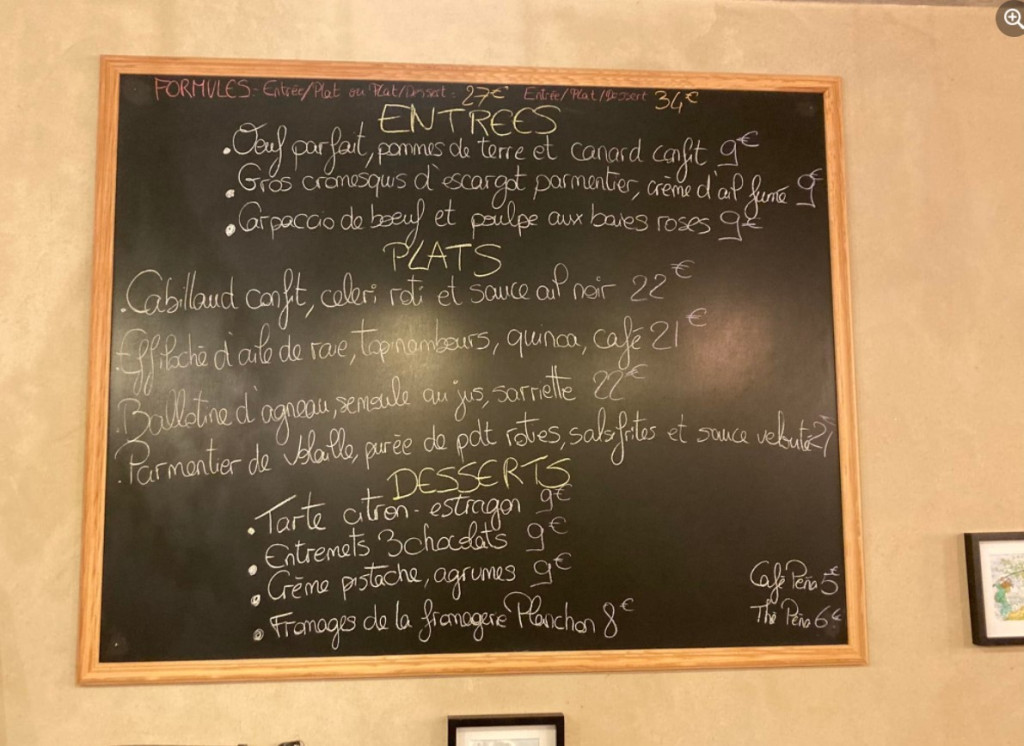 FORMULES - Entrée/Plat ou Plat/Dessert - 27€ Entrée/Plat/Dessert 34€
ENTREES
• Oeuf parfait, pommes de terre et canard confit 9€
• Gros cromesquis d'escargot parmentier, crème d'ail fumé 9€
• Carpaccio de boeuf et poulpe aux baies roses 9€
PLATS
• Cabillaud confit, celeri roti et sauce ail noir 22€
• Effiloché d'aile de raie, topinambours, quinoa, café 21€
• Ballotine d'agneau, semoule au jus, sarriette 22€
• Parmentier de volaille, purée de pdt roties, salsifrites et sauce velouté 21
DESSERTS
• Tarte citron - estragon 9€
• Entremets 3 chocolats 9€
• Crème pistache, agrumes 9€
• Fromages de la fromagerie Planchon 8€
Café Péna 5€
Thé Péna 6€